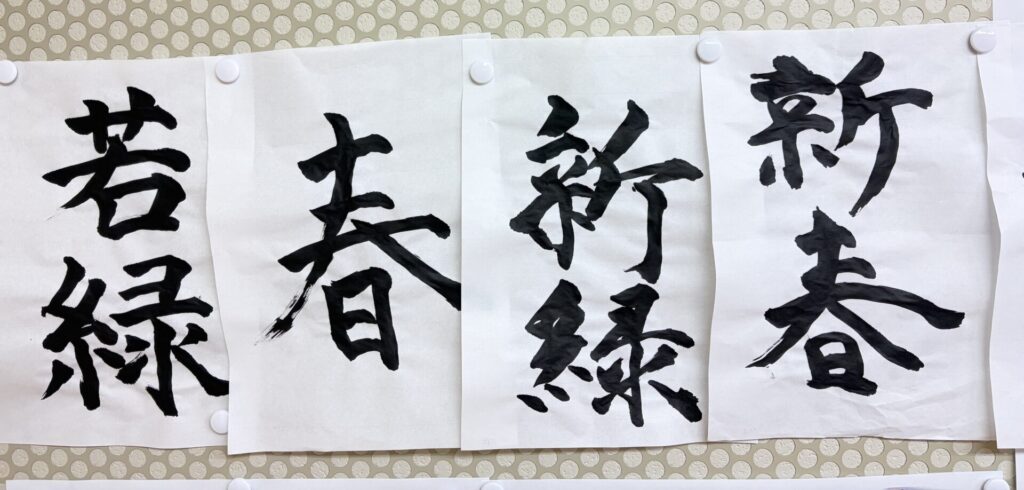 若緑
春
新緑
新春